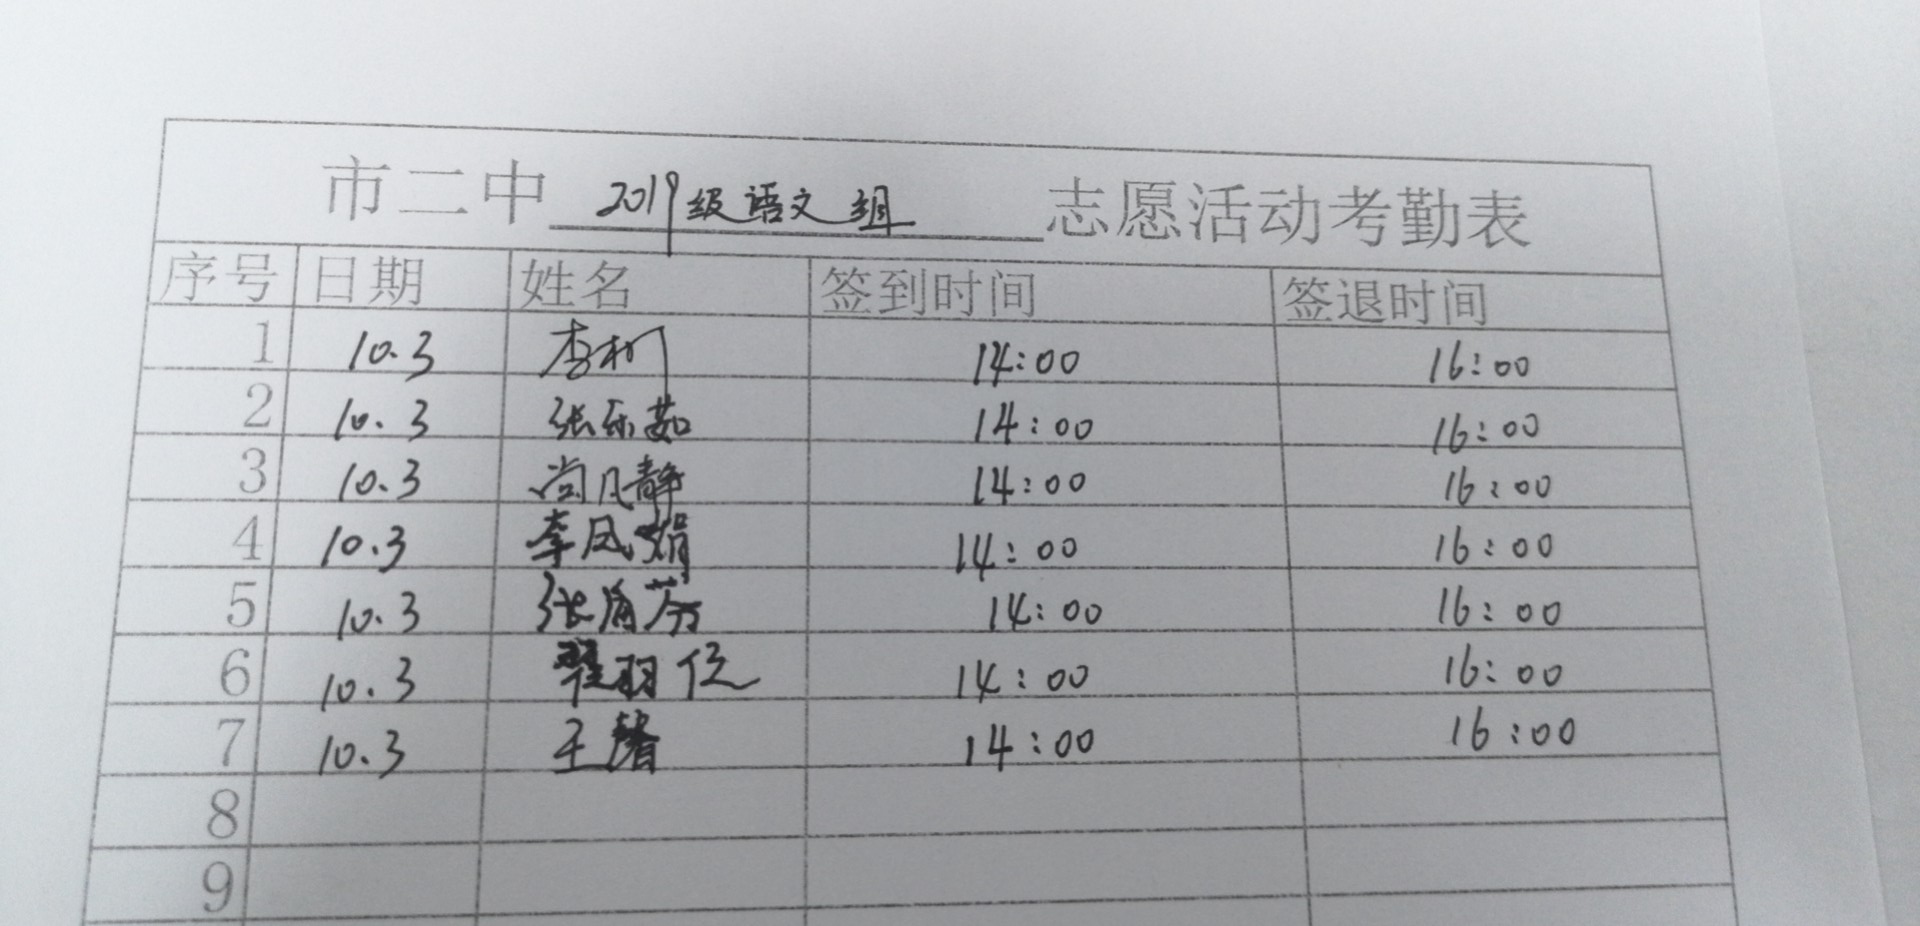 市二中 2019级语文组 志愿活动考勤表
序号 日期 姓名 签到时间 签退时间
1 10.3 李树 14:00 16:00
2 10.3 张乐茹 14:00 16:00
3 10.3 尚凡静 14:00 16:00
4 10.3 李凤娟 14:00 16:00
5 10.3 张 芬 14:00 16:00
6 10.3 翟羽佳 14:00 16:00
7 10.3 王馨 14:00 16:00
8
9